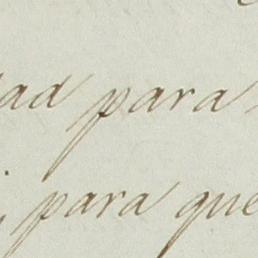 ad para
, para que